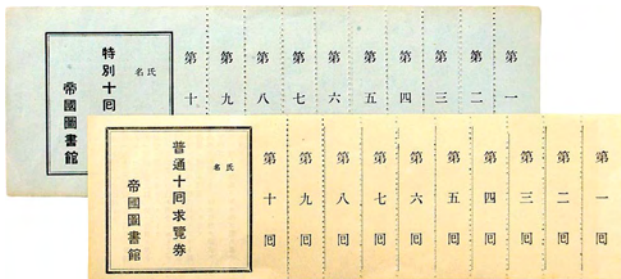 第一
第二
第三
第四
第五
第六
第七
第八
第九
第十
氏名
特別十囘
帝國圖書館
第一囘
第二囘
第三囘
第四囘
第五囘
第六囘
第七囘
第八囘
第九囘
第十囘
氏名
普通十囘求覽券
帝國圖書館